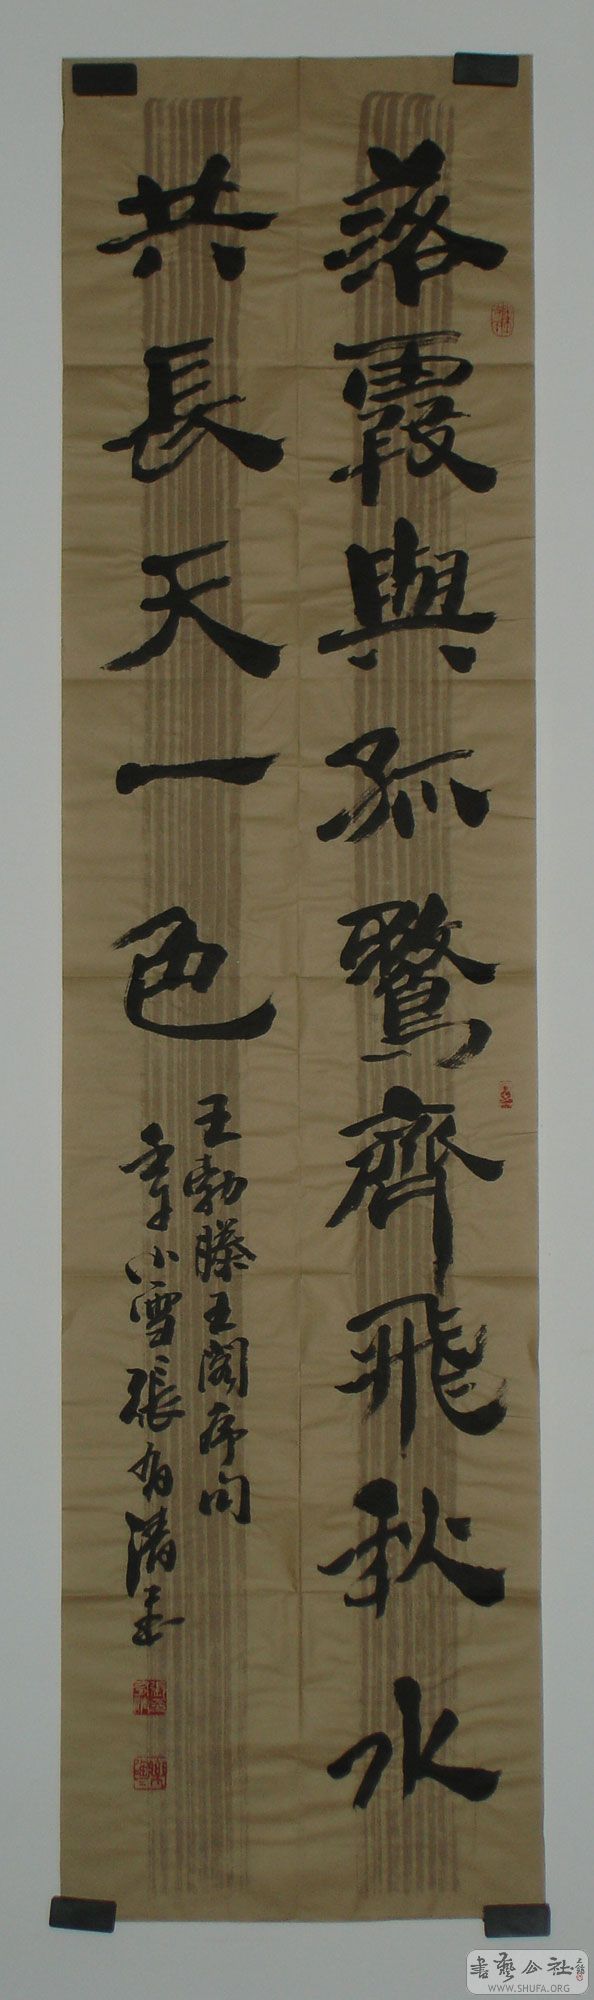 落霞與孤鶩齊飛秋水
共長天一色
王勃滕王閣序句
壬午小雪張有清書
書藝公社
WWW.SHUFA.ORG